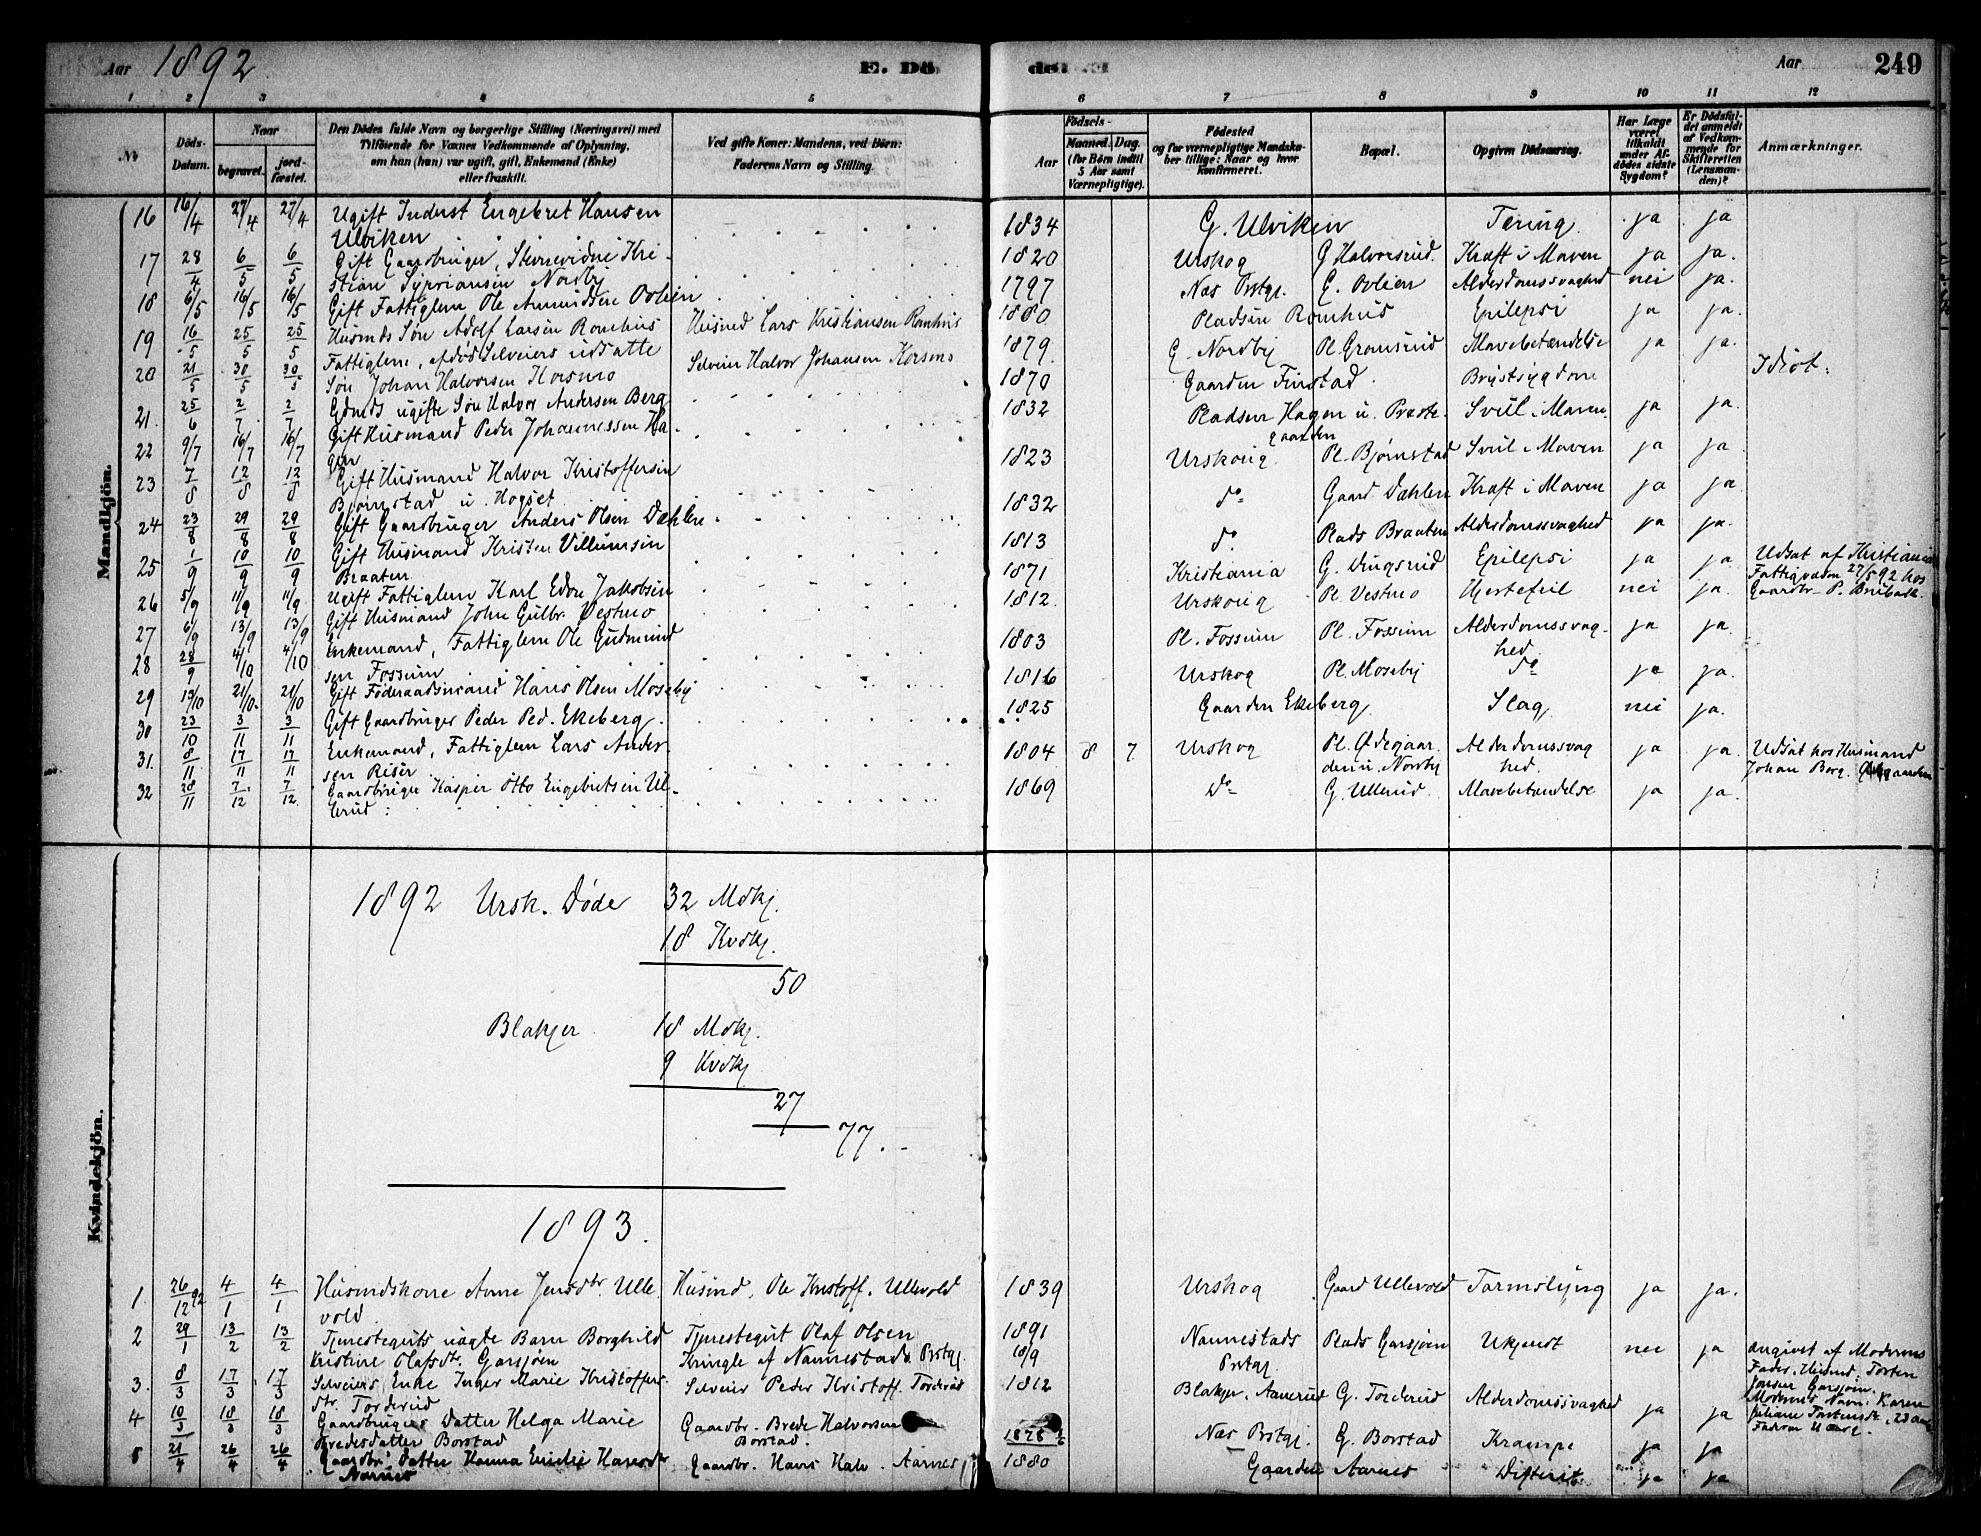 Aar 1892 E. Dö- de. Aar 249
1 2 3 4 5 6 7 8 9 10 11 12
No Döds-Datum. Naar begravet. jord-fæstet. Den Dödes fulde Navn og borgerlige Stilling (Næringsvei) med Tilföiende for Voxnes Vedkommende af Oplysning, om han (hun) var ugift, gift, Enkemand (Enke) eller fraskilt. Ved gifte Koner: Mandens, ved Börn: Faderens Navn og Stilling. Födsels- Aar Maaned. Dag. (for Börn indtil 5 Aar samt Værnepligtige). Födested og for værnepligtige Mandskaber tillige: Naar og hvor konfirmeret. Bopæl. Opgiven Dödsaarsag. Har Læge været tilkaldt under Afdödes sidste Sygdom? Er Dödsfaldet anmeldt af Vedkommende for Skifteretten (Lensmanden)? Anmærkninger.
Mandkjön.
16 16/4 27/4 27/4 Ugift Inderst Engebret Hansen Ulviken 1834 G. Ulviken Tæring ja ja
17 28/4 6/5 6/5 Gift Gaardbruger, Kristian Syversen Nordby 1820 Urskog G Halvorsrud Kræft i Maven ja ja.
18 6/5 16/5 16/5 Gift Fattiglem Ole Amundsen Ovlien 1797 Næs Prstgj. G. Ovlien Alderdomssvaghed nei ja.
19 16/5 25/5 25/5 Husmds Søn Adolf Larsen Romhus Husmd Lars Kristiansen Romhus 1880 Pladsen Romhus Epilepsi ja ja.
20 21/5 30/5 30/5 Fattiglem, afdød Selveiers udsatte Søn Johan Halvorsen Korsmo Selveier Halvor Johansen Korsmo 1879 G. Nordby Pl. Gromsrud Mavebetændelse ja ja. Idiot.
21. 25/6 2/7 2/7 Gdmds ugifte Søn Halvor Andersen Berg 1870 Gaarden Finstad Brystsygdom
22 9/7 16/7 16/7 Gift Husmand Peder Johannessen Hagen 1832 Pladsen Hagen u. Præstegaarden Svul i Maven ja ja.
23 7/8 12/8 12/8 Gift Husmand Halvor Kristoffersen Bjørnstad u. Hogset 1823 Urskoug Pl. Bjørnstad Svul i Maven ja ja
24 23/8 29/8 29/8 Gift Gaardbruger Anders Olsen Dæhlen 1832 do Gaard Dæhlen Kræft i Maven ja ja
25 1/9 10/9 10/9 Gift Husmand Kristen Villumsen Braaten 1813 do Plads Braaten Alderdomssvaghed ja ja.
26 5/9 11/9 11/9 Ugift Fattiglem Karl Edon Jakobsen 1871 Kristiania G. Dingsrud Epilepsi ja ja Udsat af Kristiania Fattigvæsen 27/5 92 hos Gaardbr. P.
27 6/9 13/9 13/9 Gift Husmand John Gulbr. Vestmo 1812 Urskoug Pl Vestmo Hjertefeil nei ja.
28 28/9 4/10 4/10 Enkemand, Fattiglem Ole Gudmundsen Fossum 1803 Pl. Fossum Pl. Fossum Alderdomssvaghed ja ja.
29 13/10 21/10 21/10 Gift Føderaadsmand Hans Olsen Moseby 1816 Urskog Pl. Moseby do ja ja.
30 23/10 3/11 3/11 Gift Gaardbruger Peder Ped. Ekeberg 1825 Gaarden Ekeberg Slag nei ja.
31. 8/11 17/11 17/11 Enkemand, Fattiglem Lars Andersen Risør 1804 8 7 Urskog Pl. Ødegaarden u. Nordby Alderdomssvaghed. ja ja. Udsat hos Husmand Johan Borg.
32 28/11 7/12 7/12 Gaardbruger Kasper Otto Engebretsen Ullerud 1869 Do G. Ullerud Mavebetændelse ja ja.
Kvindekjön.
1892 Ursk. Døde 32 Mdkj.
18 Kvdkj.
50
Blakjer 18 Mdkj.
9 Kvdkj
27
77.
1893.
1. 26/12 92 4/1 4/1 Husmdskone Anne Jensdtr. Ullevold Husmd. Ole Kristoff. Ullevold 1839 Urskog Gaard Ullevold Tarmslyng ja ja.
2 29/1 13/2 13/2 Tjenesteguts uægte Barn Borghild Kristine Olafsdtr. Garsjøen Tjenestegut Olaf Olsen Kringle af Nannestads Prstgj. 1891 18/9 Nannestads Prstgj. Plads Garsjøen Ukjendt nei ja angivet af Moderens Fader, Husmd. Torsten Jensen Garsjøen. Moderens Navn: Karen
3. 8/3 17/3 17/3 Selveiers Enke Inger Marie Kristoffersdtr. Torderud Selveier Peder Kristoff. Torderud 1812 Blakjer, Aanerud G. Torderud Alderdomssvaghed ja ja
4 10/3 18/3 18/3 Gaardbrugers Datter Helga Marie Bredesdatter Borstad Gaardbr. Brede Halvorsen Borstad. 1878 Næs Prstgj. G. Borstad Krampe ja ja
5 21/4 26/4 26/4 Gaardbr. Datter Hanna Emilie Hansdtr Aarnes Gaardbr. Hans Halv. Aarnes 1880 Gaarden Aarnes Difterit ja ja